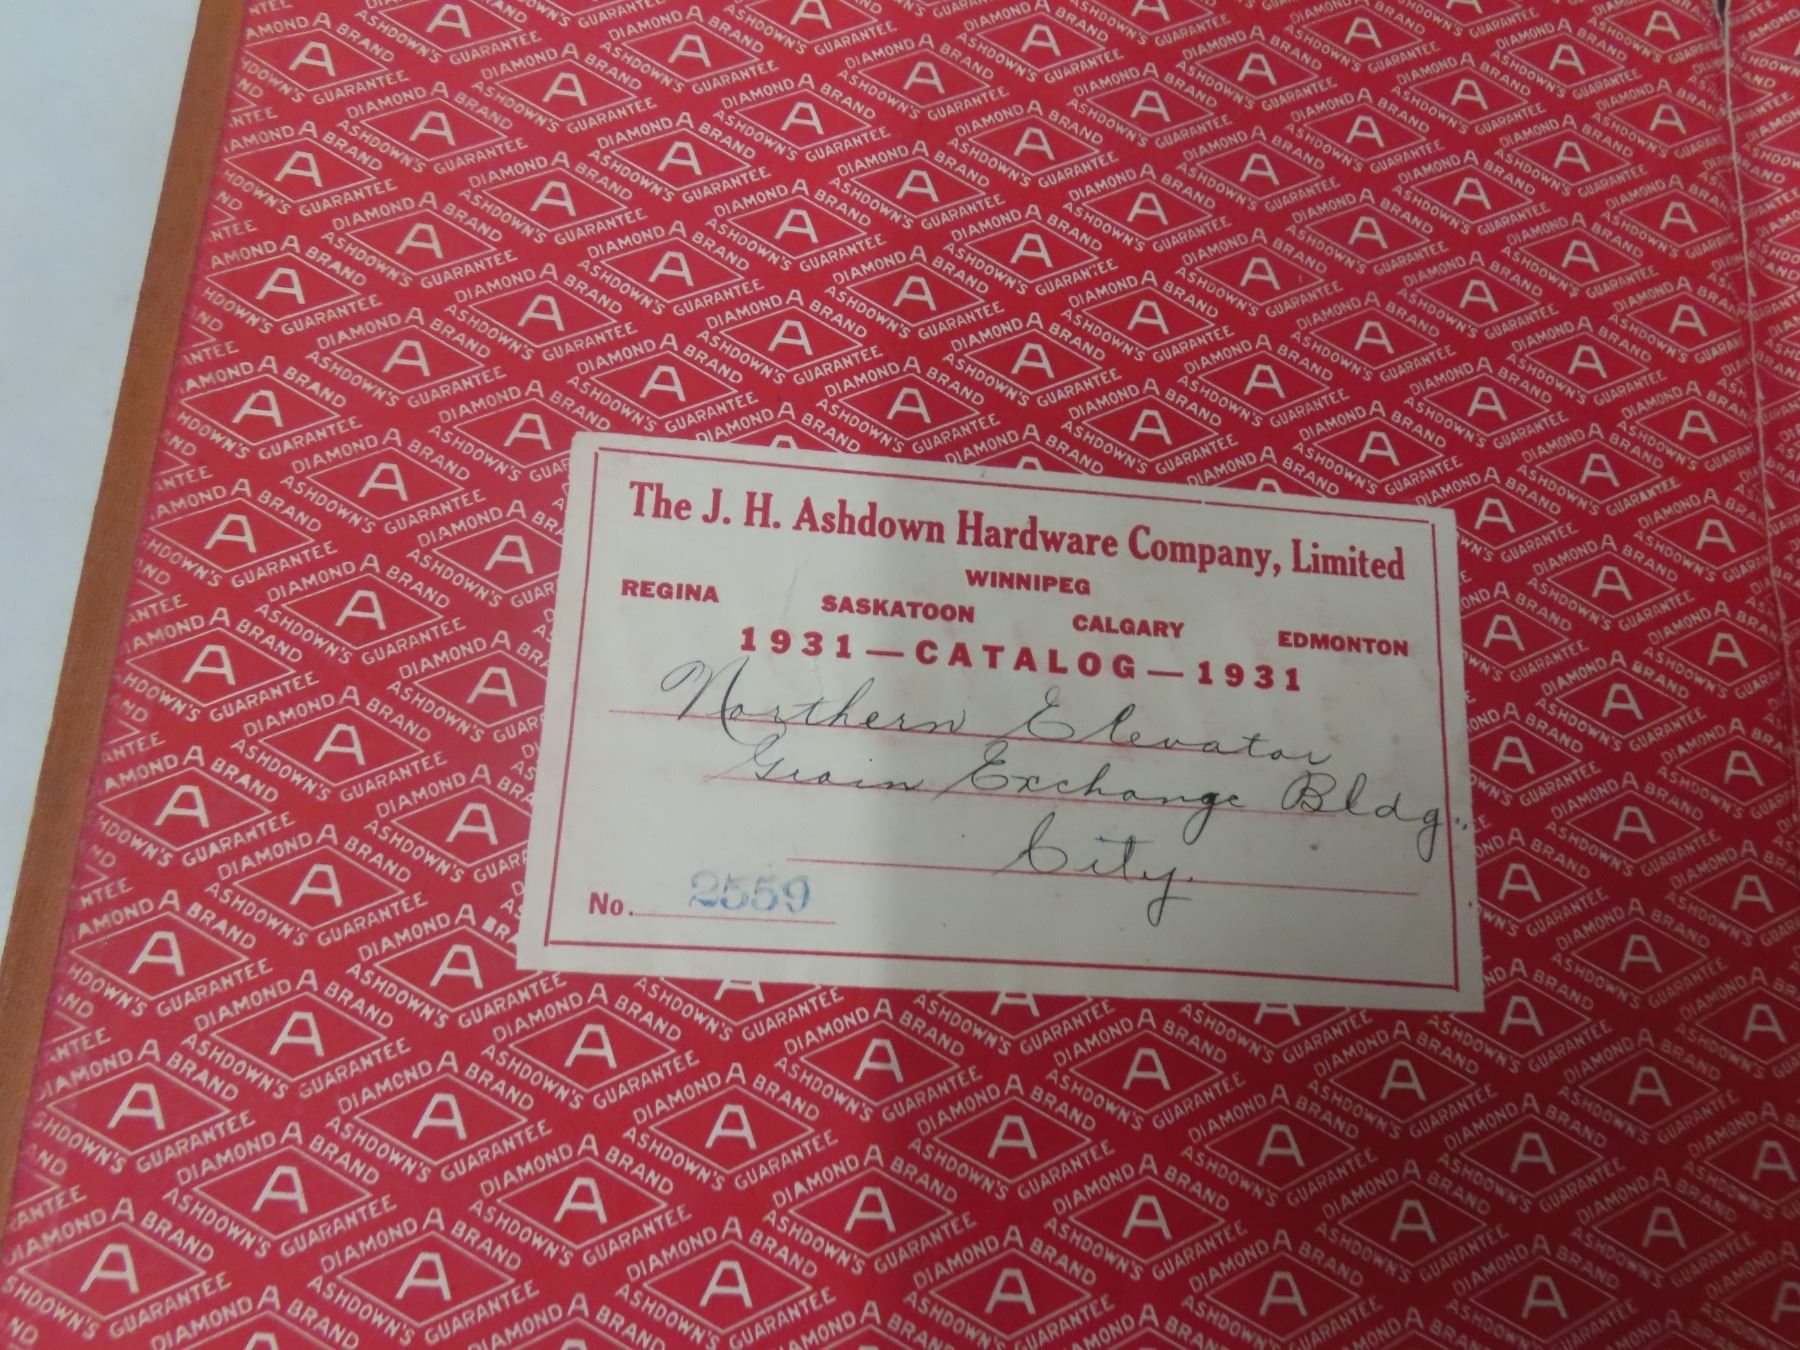 The J. H. Ashdown Hardware Company, Limited
WINNIPEG
REGINA SASKATOON CALGARY EDMONTON
1931 — CATALOG — 1931
Northern Elevator
Grain Exchange Bldg.
City.
No. 2559
DIAMOND A BRAND
ASHDOWN'S GUARANTEE
A